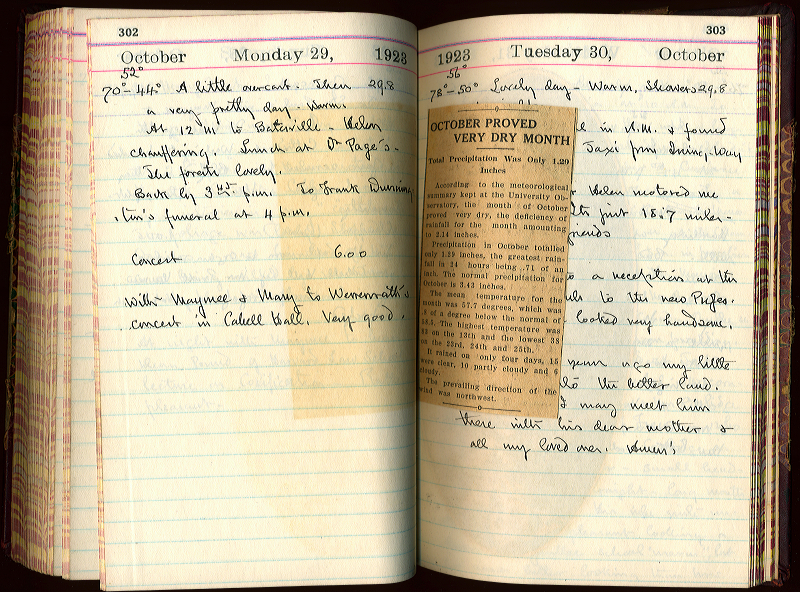 302
October Monday 29, 1923
52°
70°-44° A little overcast. Then 29.8
a very pretty day - Warm.
At 12 M to Batesville - Helen
chauffering. Lunch at Dr Page's -
The forests lovely.
Back by 3 p.m. To Frank
funeral at 4 p.m.
Concert 6.00
With Maymee & Mary to Werrenrath's
concert in Cabell Hall. Very good.
303
1923 Tuesday 30, October
56°
78°-50° Lovely day - Warm. Showers 29.8
OCTOBER PROVED
VERY DRY MONTH
Total Precipitation Was Only 1.20
Inches
According to the meteorological
summary kept at the University Ob-
servatory, the month of October
proved very dry, the deficiency of
rainfall for the month amounting
to 2.14 inches.
Precipitation in October totalled
only 1.29 inches, the greatest rain-
fall in 24 hours being .71 of an
inch. The normal precipitation for
October is 3.43 inches.
The mean temperature for the
month was 57.7 degrees, which was
of a degree below the normal of
58.5. The highest temperature was
on the 13th and the lowest 38
on the 23rd, 24th and 25th.
It rained on only four days, 15
were clear, 10 partly cloudy and 6
cloudy.
The prevailing direction of the
wind was northwest.
in A.M. & found
Taxi from
Helen motored me
just 18.7 miles -
friends
to a reception at the
to the new Profes.
looked very handsome.
years ago my little
to the better land.
I may meet him
there with his dear mother &
all my loved ones. Amen's